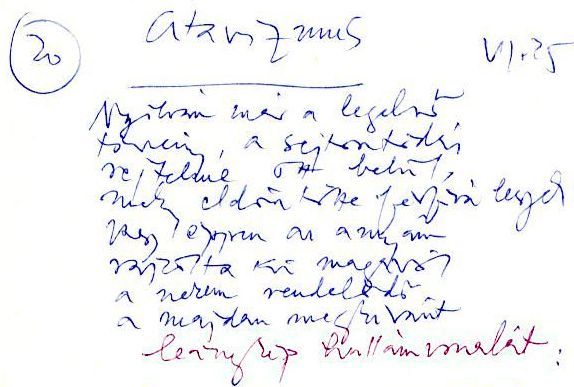 20
Atavizmus
VI. 25
Nyilván már a legelső
törvény, a sejtosztódás
rejtelme ott belül,
mely eldöntötte férfivá leszel
vagy éppen az anyám
rajzolta ki magából
a nekem rendelődő
a majdan megkívánt
leánykép hullámvonalát: